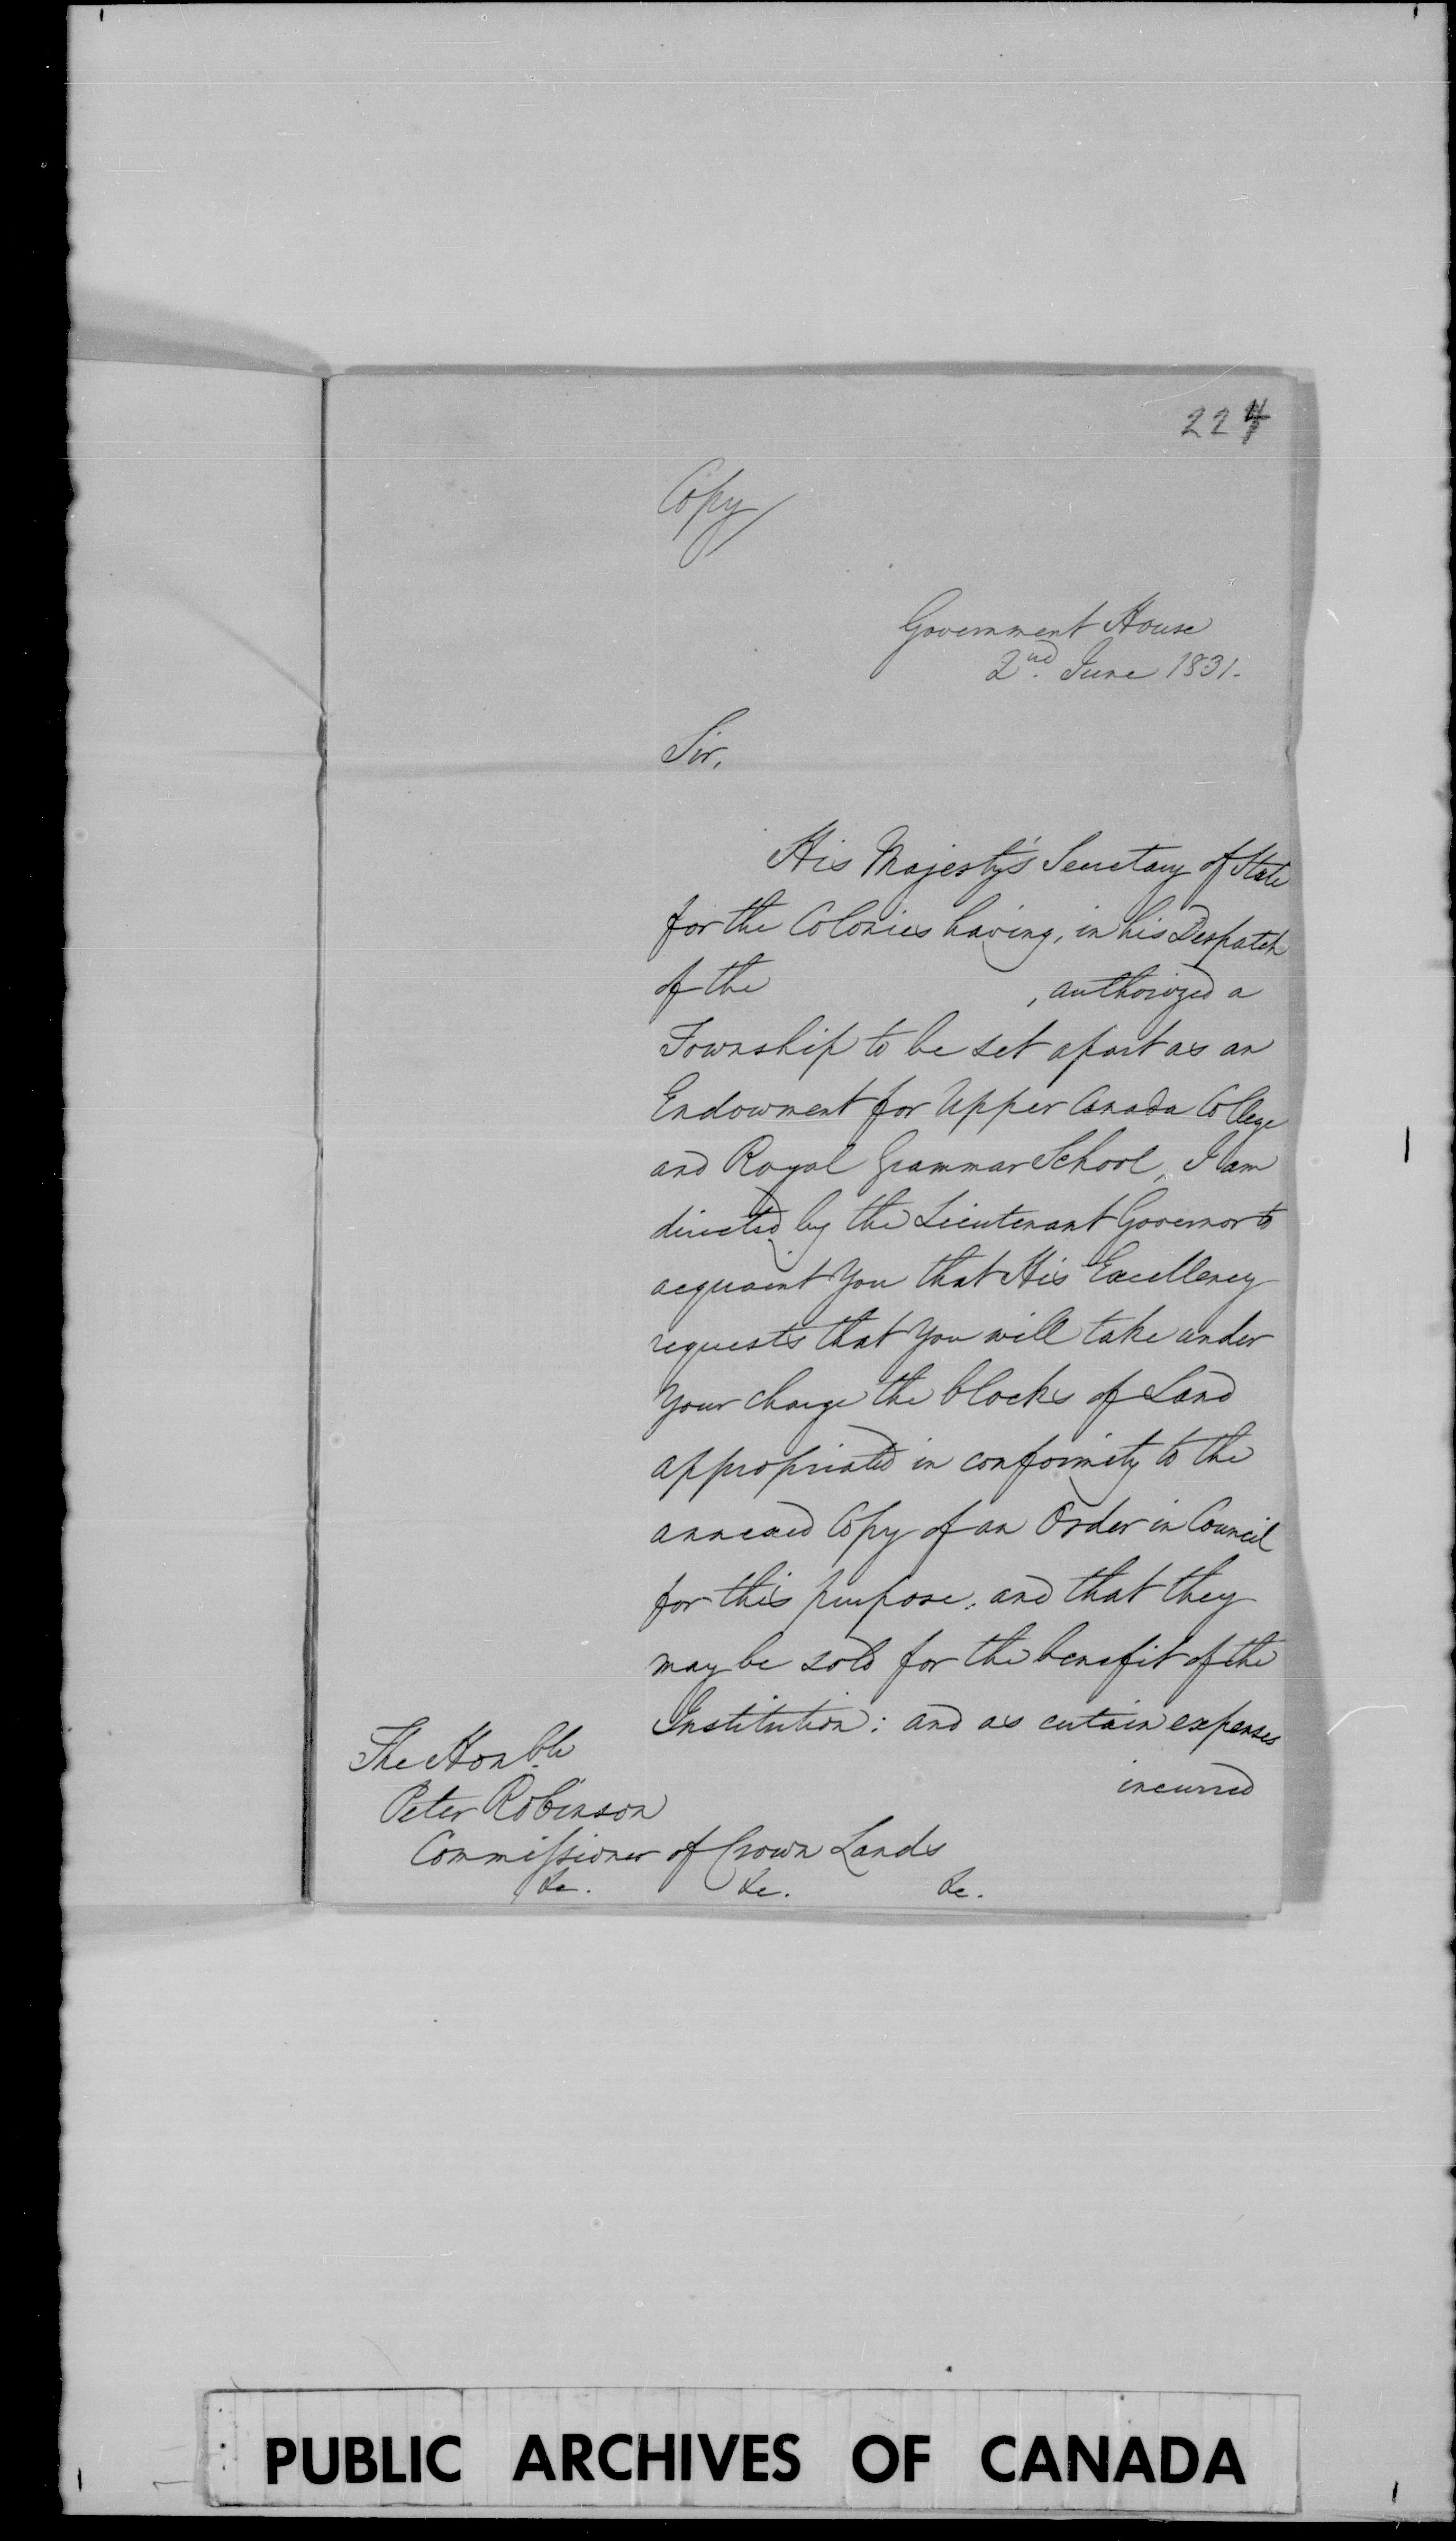 224
Copy
Government House
2nd. June 1831.
Sir,
His Majesty's Secretary of State
for the Colonies having, in his Despatch
of the , authorized a
Township to be set apart as an
Endowment for Upper Canada College
and Royal Grammar School, I am
directed by the Lieutenant Governor to
acquaint You that His Excellency
requests that You will take under
Your charge the blocks of Land
appropriated in conformity to the
annexed Copy of an Order in Council
for this purpose, and that they
may be sold for the benefit of the
Institution: and as certain expenses
incurred
The Honble.
Peter Robinson
Commissioner of Crown Lands
&c. &c. &c.
PUBLIC ARCHIVES OF CANADA